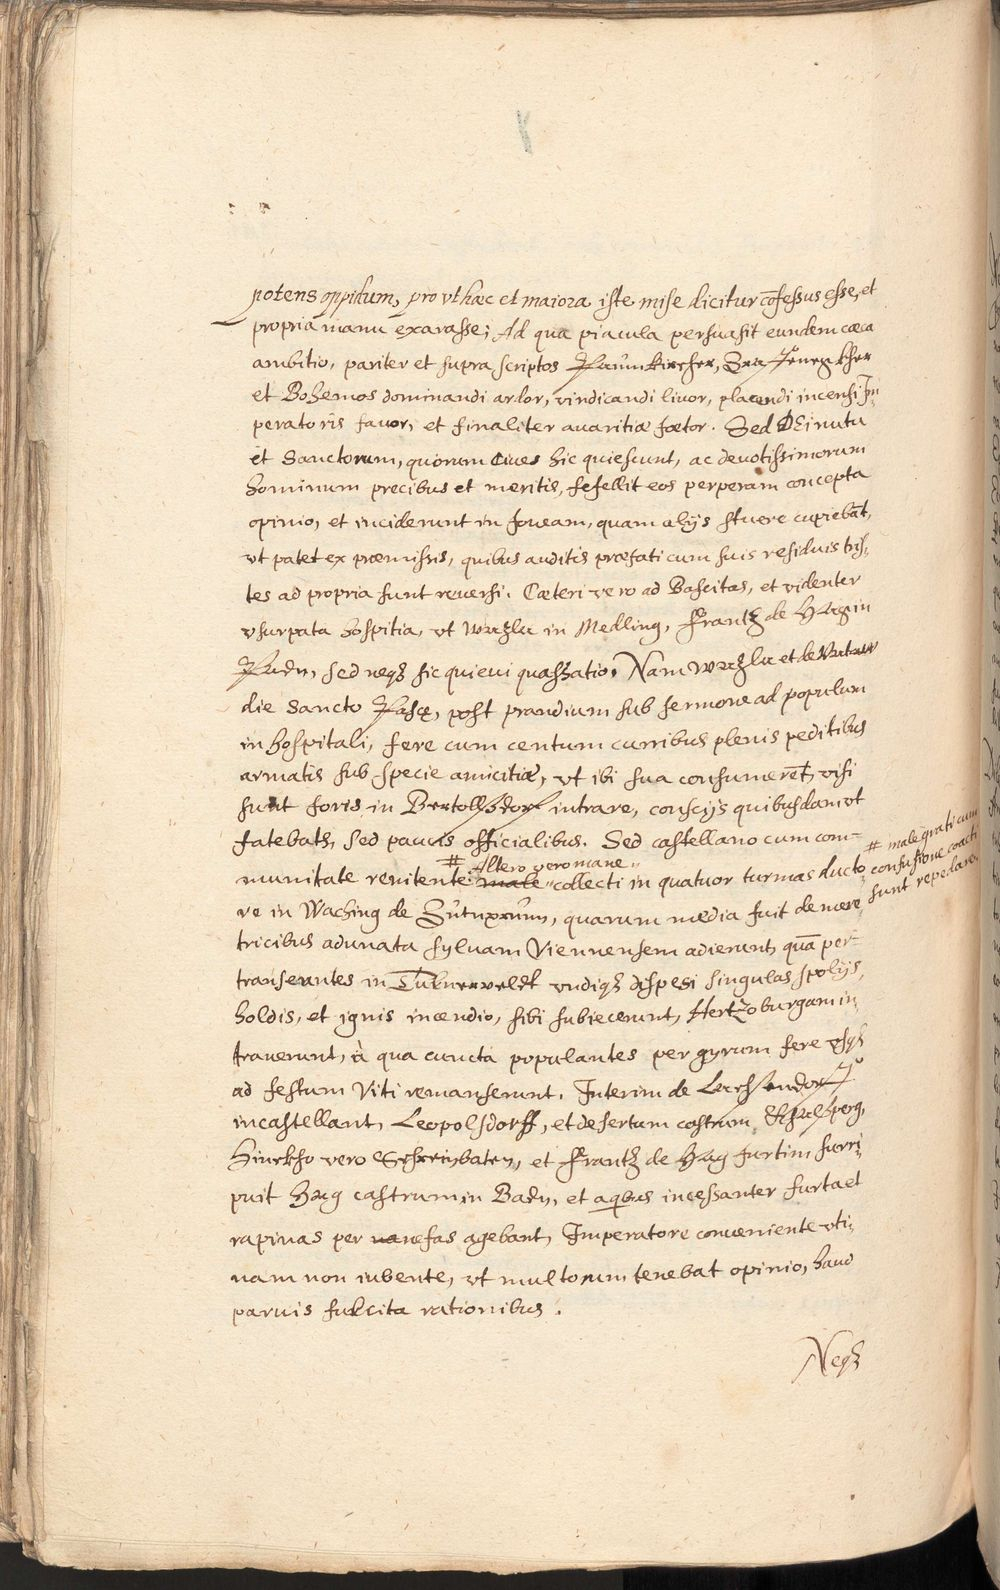 potens oppidum, pro vt hæc et maiora iste mise dicitur cõfessus esse, et
propria manu exarasse; Ad qua piacula persuasit eundem cæca
ambitio, pariter et supra scriptos Paumkircher,
et Bohemos dominandi ardor, vindicandi liuor, placendi incensi Im¬
peratoris fauor, et finaliter auaritiæ fœtor. Sed DEi nutu
et Sanctorum, quorum Ciues hic quiescunt, ac deuotissimorum
hominum precibus et meritis, fefellit eos perperam concepta
opinio, et inciderunt in foueam, quam alijs struere cupiebãt,
vt patet ex præmissis, quibus auditis præfati cum suis residuis tris¬
tes ad propria sunt reuersi. Cæteri vero ad Bascitas, et videnter
vsurpata hospitia, vt Wazla in Medling, Frantz de Hag in
Padn, sed neqз sic quieui quassatio. Nam Wazla et de
die Sancto Pascę, post prandium sub sermone ad populum
in hospitali, fere cum centum curribus plenis peditibus
armatis sub specie amicitiæ, vt ibi sua consumerẽt, visi
sunt foris in Bertollsdorf intrare, conscijs quibusdam vt
fatebatз, sed paucis officialibus. Sed castellano cum com¬
# Altero vero mane
munitate renitente: male collecti in quatuor turmas ducto
# male grati cum
confusione coacti
sunt repedare.
re in Waching de quarum media fuit de mere
tricibus adunata syluam Viennensem adierunt, quã per¬
transeuntes in Tulnerveldt vndiqз dispesi singulas, spolijs,
holdis, et ignis incendio, sibi subiecerunt, Hertzoburgam in¬
trauerunt, à qua cuncta populantes per gyrum fere vsqз
ad festum Viti remanserunt. Interim de
incastellant, Leopolsdorff, et desertum castrum
Hinckho vero et Frantz de Hag furtim surri¬
puit Hag castrum in Badn, et aqbus incessanter furta et
rapinas per nefas agebant, Imperatore conueniente vti¬
nam non iubente, vt multorum tenebat opinio, haud
paruis fulcita rationibus.
Neqз